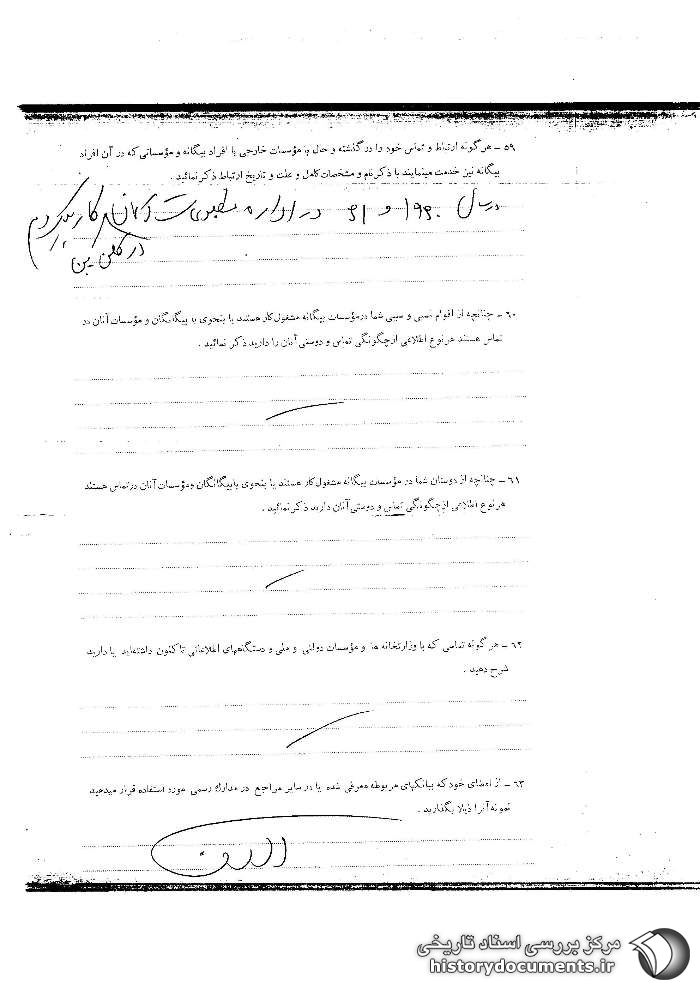 ۵۹ – هر گونه ارتباط و تماس خود را در گذشته و حال با مؤسسات خارجی یا افراد بیگانه و مؤسساتی که در آن افراد
بیگانه نیز خدمت مینمایند با ذکر نام و مشخصات کامل و علت و تاریخ ارتباط ذکر نمائید .
در سال ۱۹۶۰ و ۶۱ در اداره مطبوعات آلمان کار میکردم
در کلن بن
۶۰ – چنانچه از اقوام نسبی و سببی شما در مؤسسات بیگانه مشغول کار هستند یا بنحوی با بیگانگان و مؤسسات آنان در
تماس هستند هر نوع اطلاعی از چگونگی تماس و دوستی آنان را دارید ذکر نمائید .
۶۱ – چنانچه از دوستان شما در مؤسسات بیگانه مشغول کار هستند یا بنحوی با بیگانگان و مؤسسات آنان در تماس هستند
هر نوع اطلاعی از چگونگی تماس و دوستی آنان دارید ذکر نمائید .
۶۲ – هر گونه تماسی که با وزارتخانه ها و مؤسسات دولتی و ملی و دستگاههای اطلاعاتی تا کنون داشته‌اید یا دارید
شرح دهید .
۶۳ – از امضای خود که ببانکهای مربوطه معرفی شده یا در سایر مراجع در مدارک رسمی مورد استفاده قرار میدهید
نمونه آنرا ذیلا بگذارید .
مرکز بررسی اسناد تاریخی
historydocuments.ir